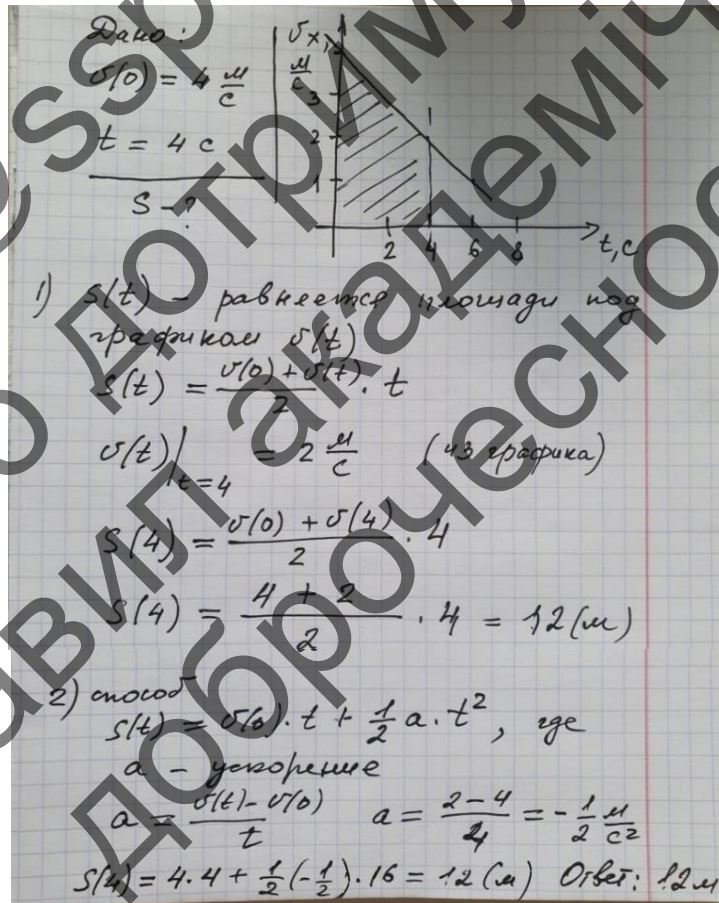 Дано:
υ(0) = 4 м/с
t = 4 с
S - ?
υx,
м/с
3
2
1
2 4 6 8
t, с
1) S(t) - равняется площади под
графиком υ(t)
S(t) = (υ(0) + υ(t))/2 · t
υ(t)|t=4 = 2 м/с (из графика)
S(4) = (υ(0) + υ(4))/2 · 4
S(4) = (4 + 2)/2 · 4 = 12 (м)
2) способ
S(t) = υ(0) · t + 1/2 a · t², где
a - ускорение
a = (υ(t) - υ(0))/t a = (2 - 4)/4 = - 1/2 м/с²
S(4) = 4 · 4 + 1/2 (-1/2) · 16 = 12 (м) Ответ: 12 м
академіч
доброчеснос